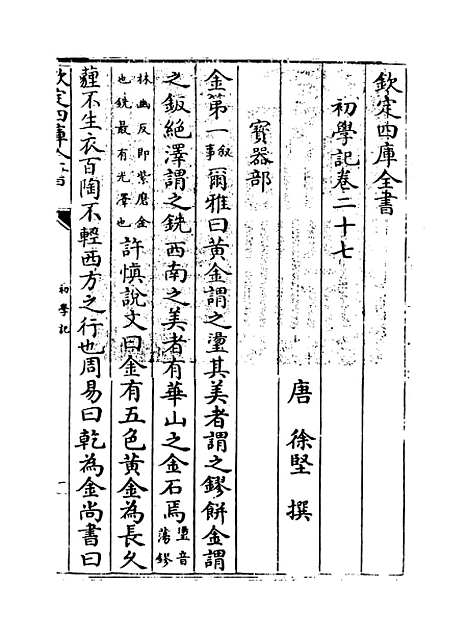 欽定四庫全書
初學記卷二十七
唐 徐堅 撰
寶器部
金第一 敘事 爾雅曰黃金謂之璗其美者謂之鏐餅金謂
之鈑絕澤謂之銑西南之美者有華山之金石焉 璗音蕩鏐
林幽反即紫磨金也銑最有光澤也 許慎說文曰金有五色黃金為長久
薶不生衣百陶不輕西方之行也周易曰乾為金尚書曰
欽定四庫全書
初學記
一